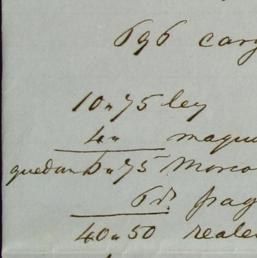 696 carg
10„75 ley
4„ maqu
quedan 6„75 Marco
6 rs. pag
40„50 reale